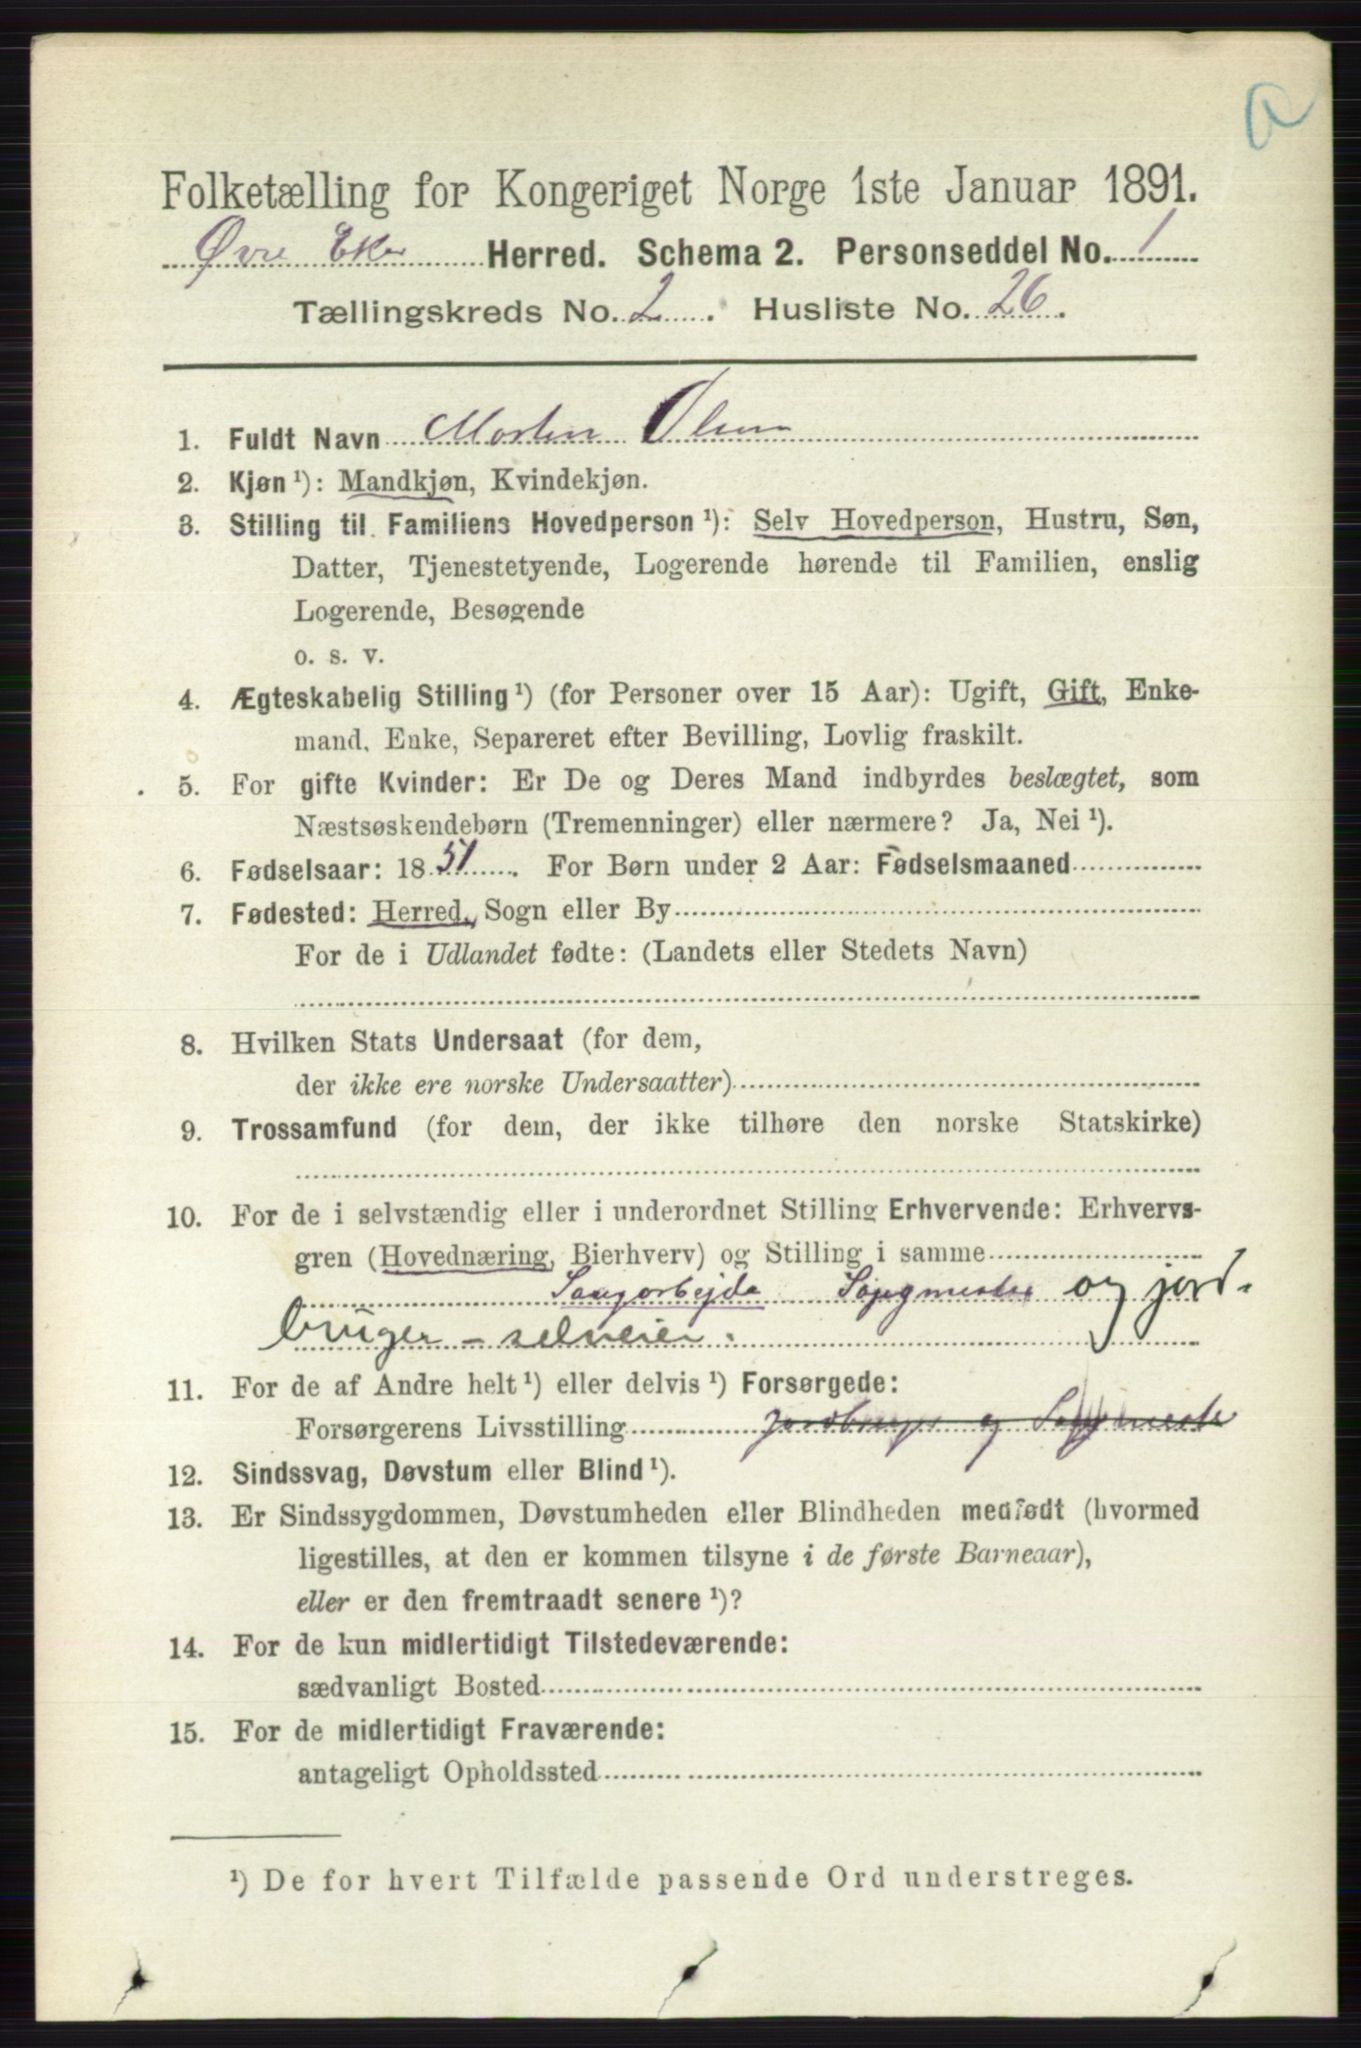 a
Folketælling for Kongeriget Norge 1ste Januar 1891.
Øvre Eker Herred. Schema 2. Personseddel No. 1
Tællingskreds No. 2. Husliste No. 26.
1. Fuldt Navn Morten Olsen
2. Kjøn ¹): Mandkjøn, Kvindekjøn.
3. Stilling til Familiens Hovedperson ¹): Selv Hovedperson, Hustru, Søn,
Datter, Tjenestetyende, Logerende hørende til Familien, enslig
Logerende, Besøgende
o. s. v.
4. Ægteskabelig Stilling ¹) (for Personer over 15 Aar): Ugift, Gift, Enke-
mand, Enke, Separeret efter Bevilling, Lovlig fraskilt.
5. For gifte Kvinder: Er De og Deres Mand indbyrdes beslægtet, som
Næstsøskendebørn (Tremenninger) eller nærmere? Ja, Nei ¹).
6. Fødselsaar: 1851. For Børn under 2 Aar: Fødselsmaaned
7. Fødested: Herred, Sogn eller By
For de i Udlandet fødte: (Landets eller Stedets Navn)
8. Hvilken Stats Undersaat (for dem,
der ikke ere norske Undersaatter)
9. Trossamfund (for dem, der ikke tilhøre den norske Statskirke)
10. For de i selvstændig eller i underordnet Stilling Erhvervende: Erhvervs-
gren (Hovednæring, Bierhverv) og Stilling i samme
Saugarbejde og jord-
bruger - selveier.
11. For de af Andre helt ¹) eller delvis ¹) Forsørgede:
Forsørgerens Livsstilling og
12. Sindssvag, Døvstum eller Blind ¹).
13. Er Sindssygdommen, Døvstumheden eller Blindheden medfødt (hvormed
ligestilles, at den er kommen tilsyne i de første Barneaar),
eller er den fremtraadt senere ¹)?
14. For de kun midlertidigt Tilstedeværende:
sædvanligt Bosted
15. For de midlertidigt Fraværende:
antageligt Opholdssted
¹) De for hvert Tilfælde passende Ord understreges.